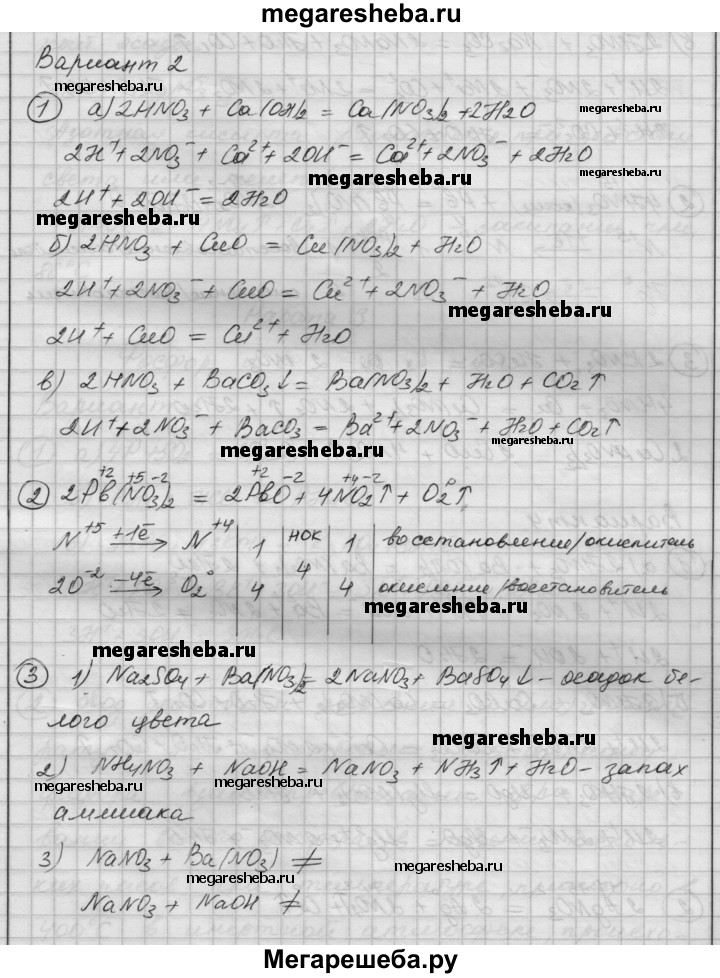 megaresheba.ru
Вариант 2
megaresheba.ru
① а) 2HNO₃ + Ca(OH)₂ = Ca(NO₃)₂ + 2H₂O
megaresheba.ru
2H⁺ + 2NO₃⁻ + Ca²⁺ + 2OH⁻ = Ca²⁺ + 2NO₃⁻ + 2H₂O
megaresheba.ru
megaresheba.ru
2H⁺ + 2OH⁻ = 2H₂O
megaresheba.ru
б) 2HNO₃ + CuO = Cu(NO₃)₂ + H₂O
2H⁺ + 2NO₃⁻ + CuO = Cu²⁺ + 2NO₃⁻ + H₂O
megaresheba.ru
2H⁺ + CuO = Cu²⁺ + H₂O
в) 2HNO₃ + BaCO₃↓ = Ba(NO₃)₂ + H₂O + CO₂↑
2H⁺ + 2NO₃⁻ + BaCO₃ = Ba²⁺ + 2NO₃⁻ + H₂O + CO₂↑
megaresheba.ru
megaresheba.ru
+2 +5 -2 +2 -2 +4 -2 0
② 2Pb(NO₃)₂ = 2PbO + 4NO₂↑ + O₂↑
N⁺⁵ +1ē → N⁺⁴ | 1 | НОК | 1 | восстановление/окислитель
4
2O⁻² -4ē → O₂⁰ | 4 | | 4 | окисление/восстановитель
megaresheba.ru
megaresheba.ru
③ 1) Na₂SO₄ + Ba(NO₃)₂ = 2NaNO₃ + BaSO₄↓ – осадок бе-
лого цвета
megaresheba.ru
2) NH₄NO₃ + NaOH = NaNO₃ + NH₃↑ + H₂O – запах
megaresheba.ru
megaresheba.ru
megaresheba.ru
аммиака
3) NaNO₃ + Ba(NO₃) ≠
megaresheba.ru
megaresheba.ru
NaNO₃ + NaOH ≠
Мегарешеба.ру